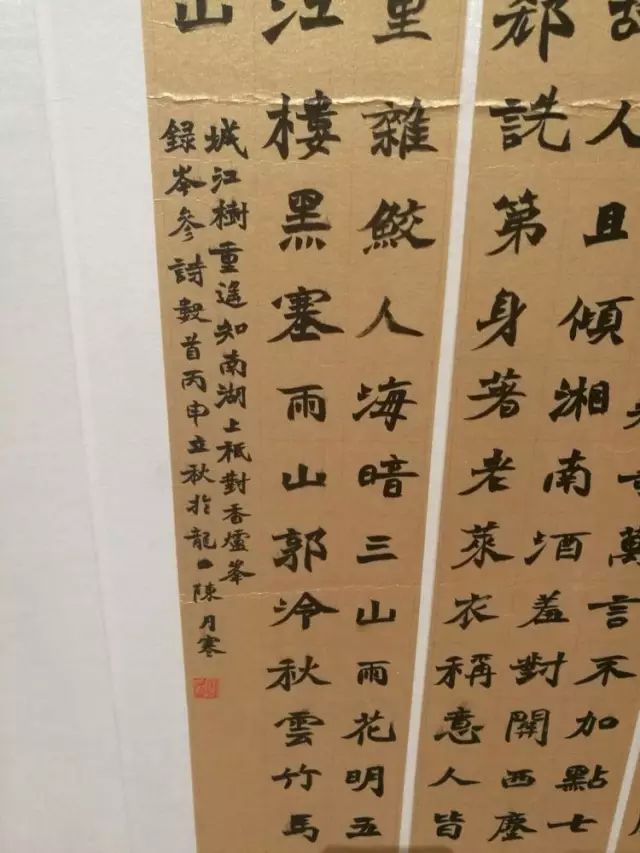 萬言不加點七
故人且傾湘南酒羞對關西塵
郄詵第身著老萊衣稱意人皆
里雜鮫人海暗三山雨花明五
江樓黑塞雨山郭冷秋雲竹馬
山
城江樹重遙知南湖上祗對香爐峯
録岑參詩數首丙申立秋於龍口陳月寒